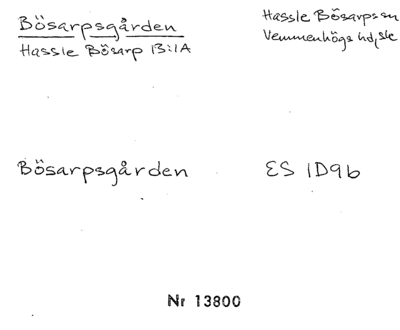 Bösarpsgården
Hassle Bösarp 13:1A
Hassle Bösarps sn
Vemmenhögs hd, sk
Bösarpsgården
ES 1D9b
Nr 13800